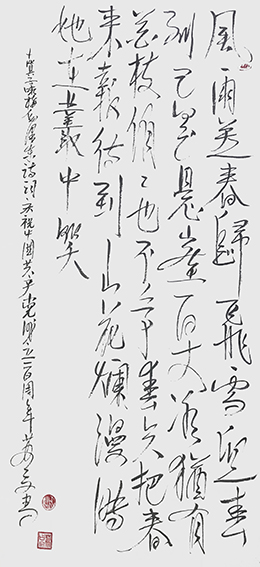 風雨送春歸飛雪迎春
到已是懸崖百丈冰猶有
花枝俏〻也不争春只把春
来報待到山花爛漫時
她在叢中笑
毛澤東詩詞慶祝中國共产党成立一百周年